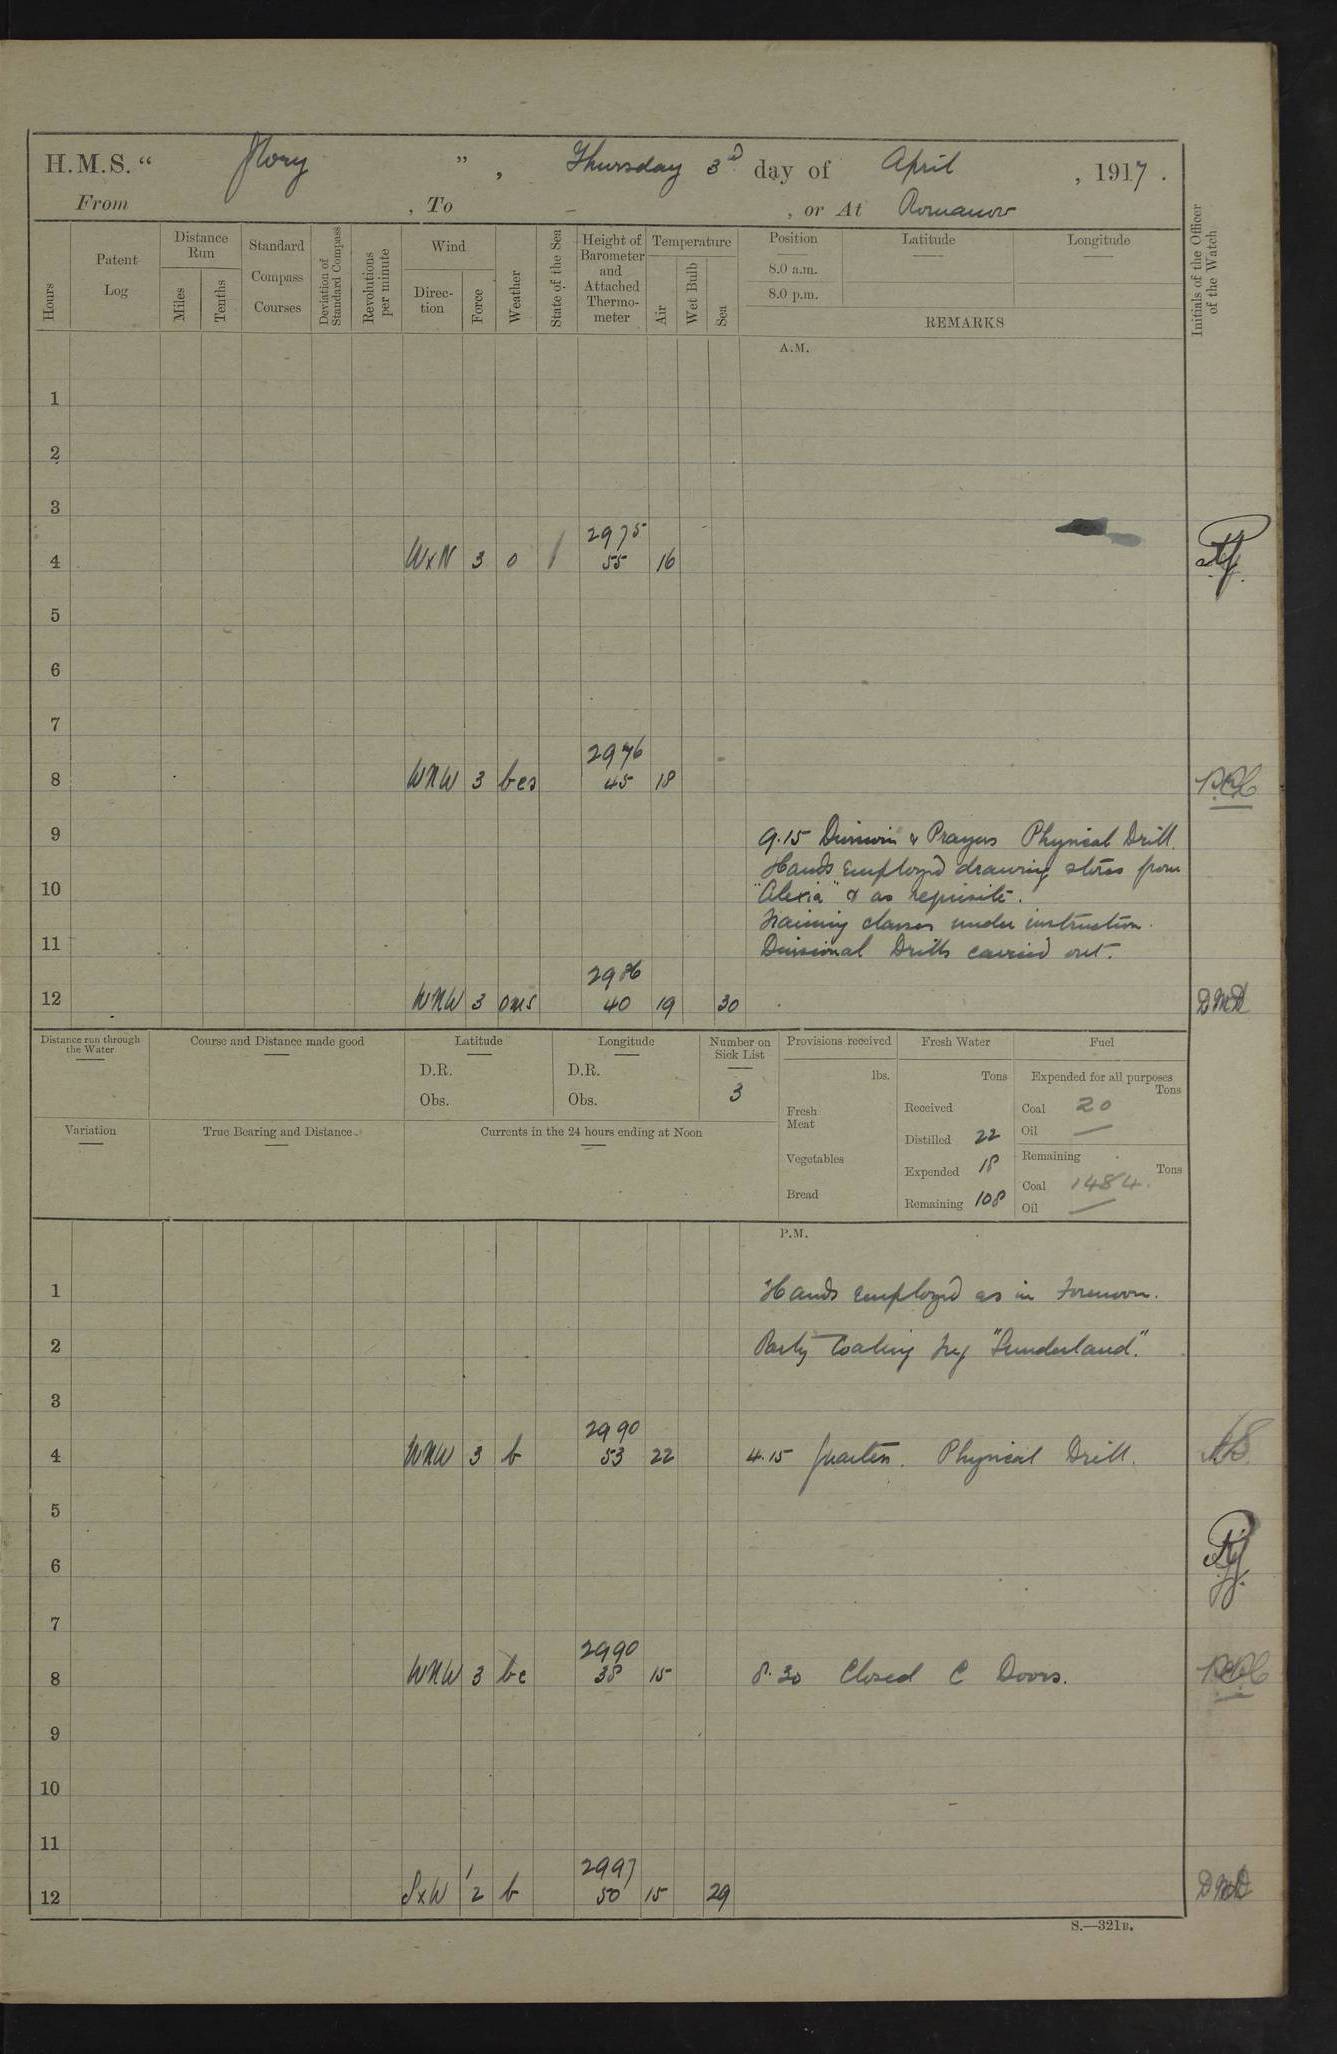 H.M.S. “ Glory ” , Thursday 3D day of April , 1917 .
From , To – , or At Romanov
Hours
Patent Log
Distance Run
Miles
Tenths
Standard Compass Courses
Deviation of Standard Compass
Revolutions per minute
Wind
Direc-tion
Force
Weather
State of the Sea
Height of Barometer and Attached Thermo-meter
Temperature
Air
Wet Bulb
Sea
Position
8.0 a.m.
8.0 p.m.
Latitude
Longitude
REMARKS
Initials of the Officer of the Watch
A.M.
1
2
3
2975
4 WxN 3 0 / 55 16
5
6
7
2976
8 WNW 3 bcs 45 18
9
9.15 Division & Prayers Physical Drill.
Hands employed drawing stores from
10
"Alexia" & as requisite.
Training classes under instruction.
11
Divisional Drills carried out.
2986
12 WNW 3 oms 40 19 30 DMD
Distance run through the Water
Course and Distance made good
Latitude
D.R.
Obs.
Longitude
D.R.
Obs.
Number on Sick List
3
Provisions received
lbs.
Fresh Meat
Vegetables
Bread
Fresh Water
Tons
Received
Distilled 22
Expended 18
Remaining 108
Fuel
Expended for all purposes
Tons
Coal 20
Oil —
Remaining
Tons
Coal 1484.
Oil —
Variation
True Bearing and Distance
Currents in the 24 hours ending at Noon
P.M.
1 Hands employed as in Forenoon.
2 Party Coaling Tug "Sunderland".
3
2990
4 WNW 3 b 53 22 4.15 Quarters. Physical Drill.
5
6
7
2990
8 WNW 3 bc 38 15 8.30 Closed C Doors.
9
10
11
2997
12 SxW 1/2 b 50 15 29 DMD
S.—321B.